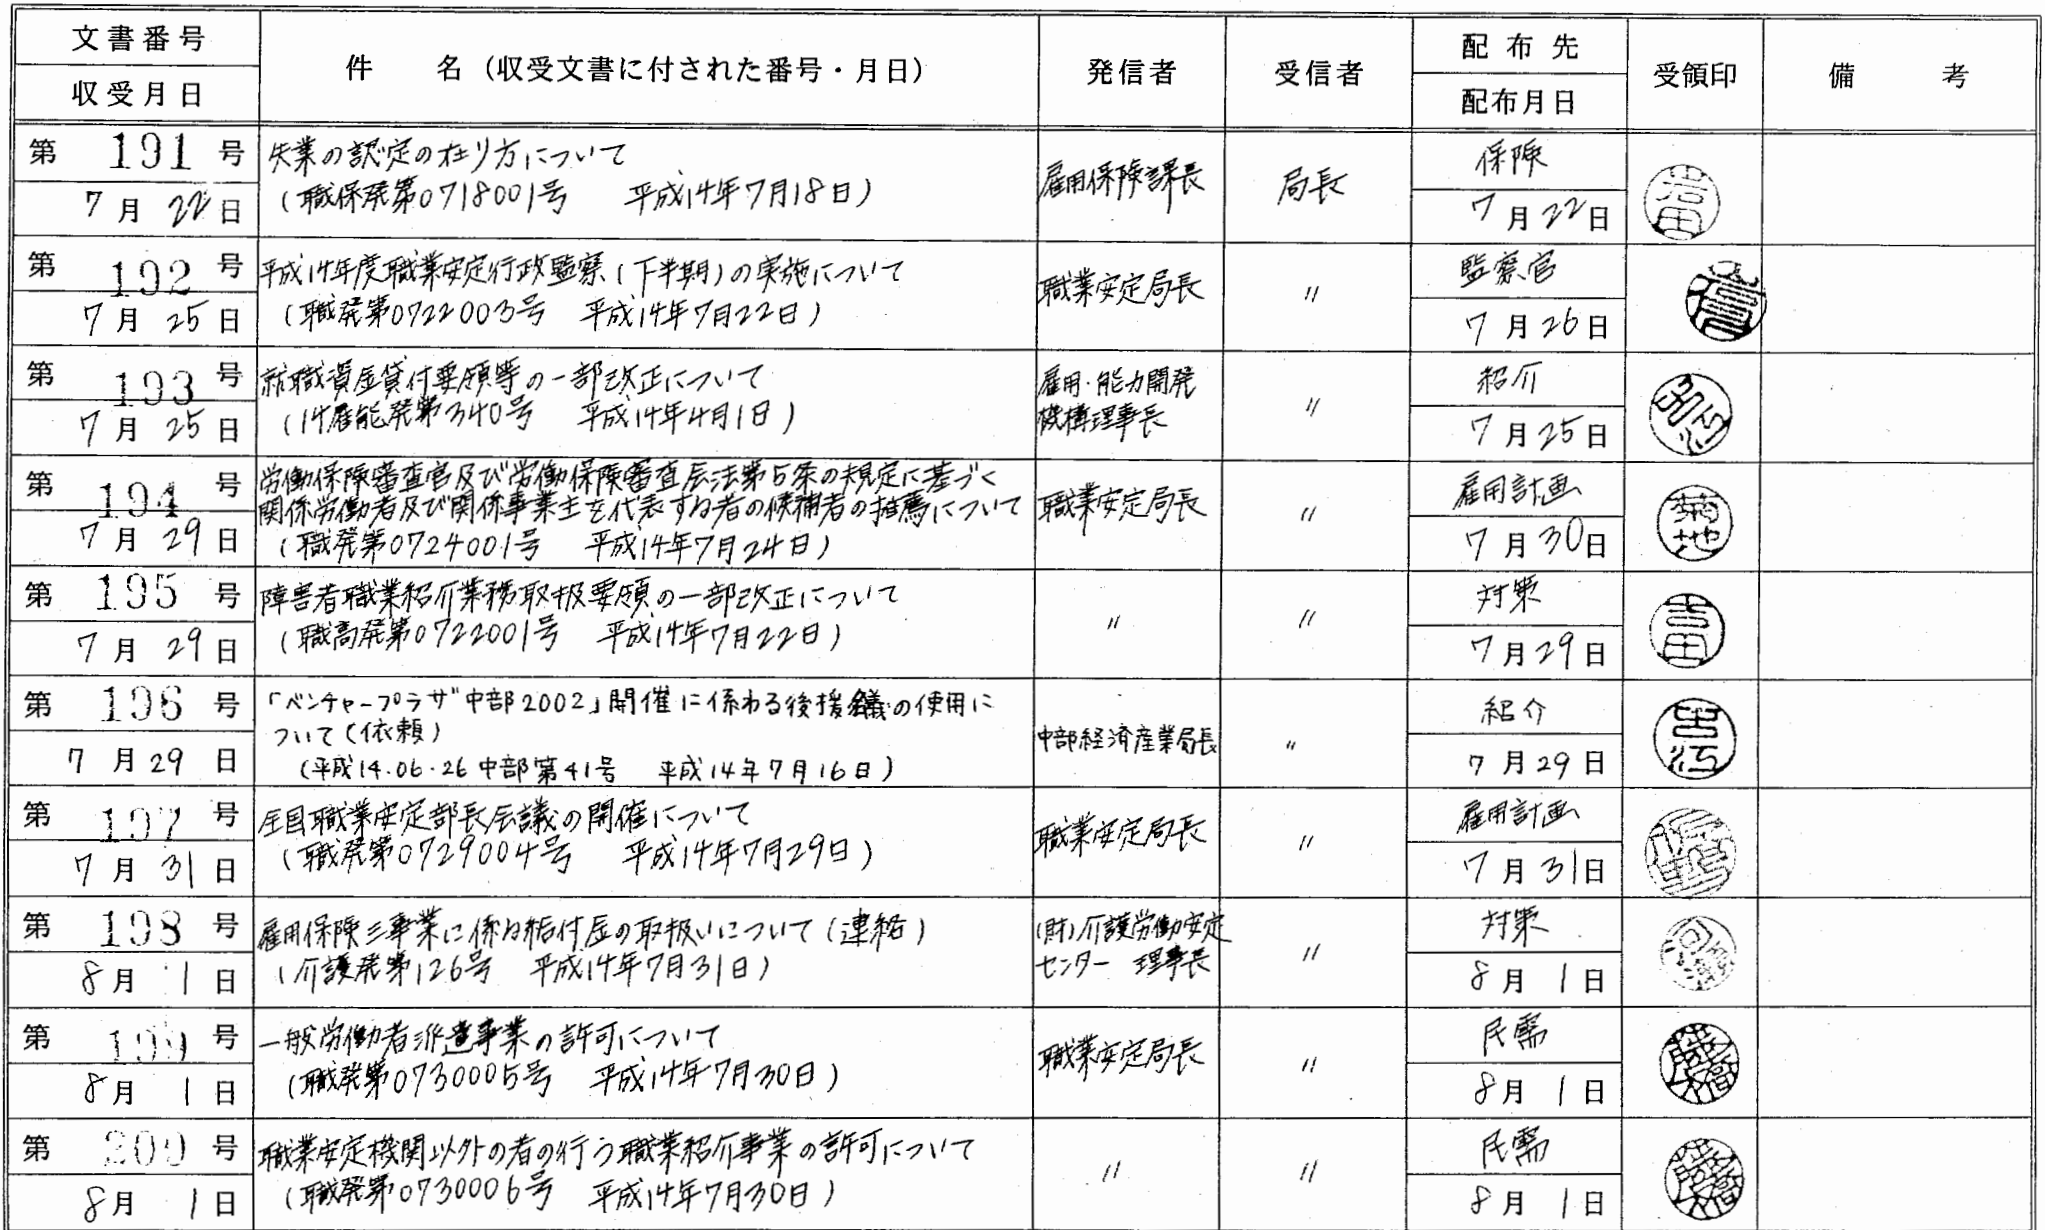 文書番号
収受月日
件　　名（収受文書に付された番号・月日）
発信者
受信者
配布先
配布月日
受領印
備　　考
第 191 号
7月 22日
失業の認定の在り方について
（職保発第0718001号　平成14年7月18日）
雇用保険課長
局長
保険
7月22日
岩田
第 192 号
7月 25日
平成14年度職業安定行政監察（下半期）の実施について
（職発第0722003号　平成14年7月22日）
職業安定局長
〃
監察官
7月26日
第 193 号
7月 25日
就職資金貸付要領等の一部改正について
（14雇能発第340号　平成14年4月1日）
雇用・能力開発
機構理事長
〃
紹介
7月25日
第 194 号
7月 29日
労働保険審査官及び労働保険審査会法第5条の規定に基づく
関係労働者及び関係事業主を代表する者の候補者の推薦について
（職発第0724001号　平成14年7月24日）
職業安定局長
〃
雇用計画
7月30日
菊地
第 195 号
7月 29日
障害者職業紹介業務取扱要領の一部改正について
（職高発第0722001号　平成14年7月22日）
〃
〃
対策
7月29日
吉田
第 196 号
7月29日
「ベンチャープラザ中部2002」開催に係わる後援名義の使用に
ついて（依頼）
（平成14.06.26中部第41号　平成14年7月16日）
中部経済産業局長
〃
紹介
7月29日
古江
第 197 号
7月 31日
全国職業安定部長会議の開催について
（職発第0729004号　平成14年7月29日）
職業安定局長
〃
雇用計画
7月31日
第 198 号
8月 1日
雇用保険三事業に係る給付金の取扱いについて（連絡）
（介護発第126号　平成14年7月31日）
（財）介護労働安定
センター　理事長
〃
対策
8月 1日
第 199 号
8月 1日
一般労働者派遣事業の許可について
（職発第0730005号　平成14年7月30日）
職業安定局長
〃
民需
8月 1日
第 200 号
8月 1日
職業安定機関以外の者の行う職業紹介事業の許可について
（職発第0730006号　平成14年7月30日）
〃
〃
民需
8月 1日